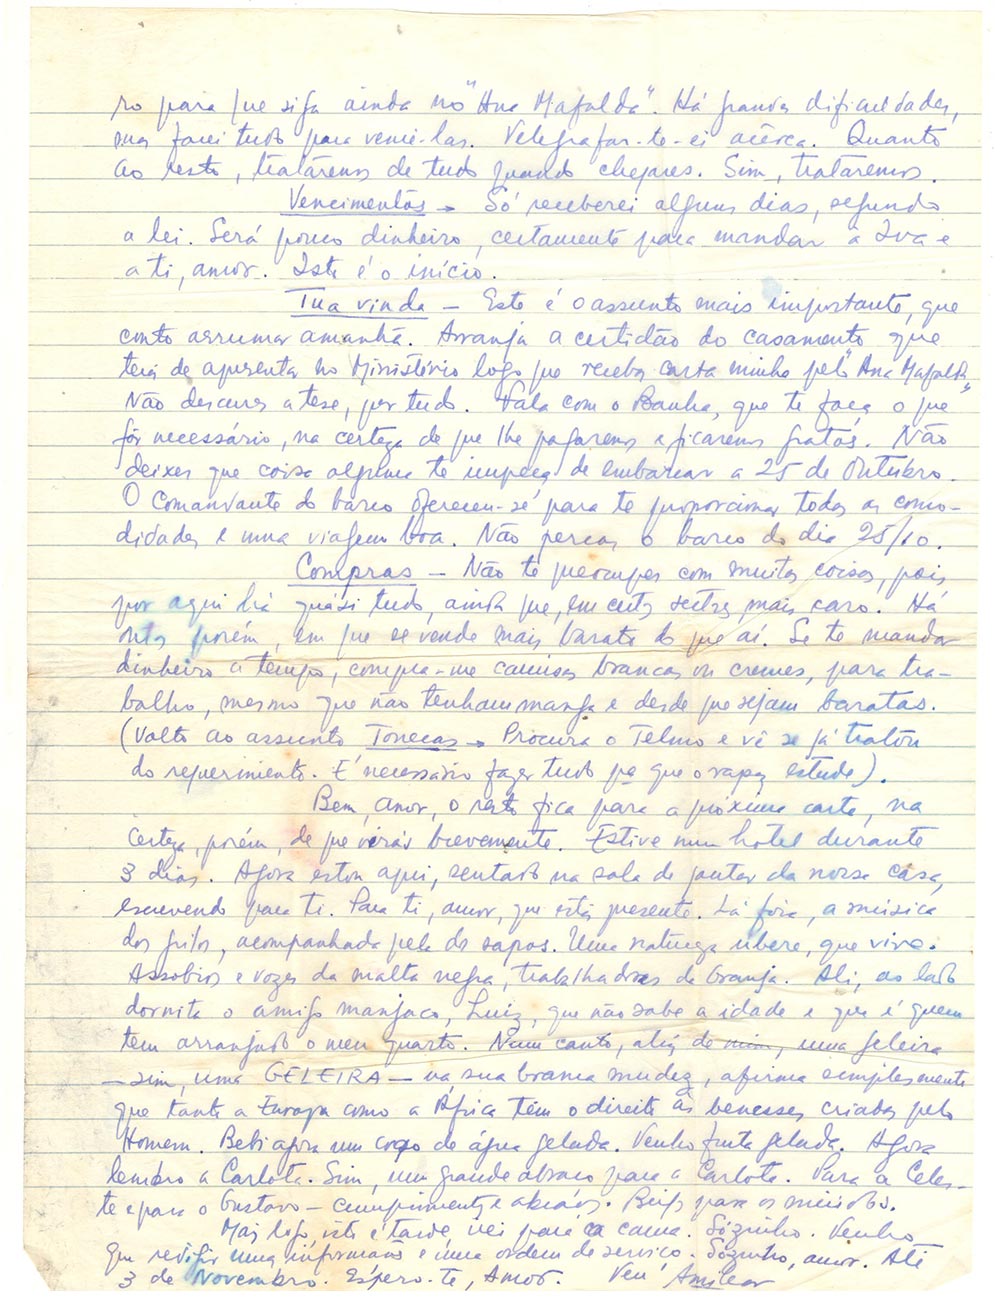 ro para que siga ainda no "Ana Mafalda". Há grandes dificuldades,
mas farei tudo para vencê-las. Telegrafar-te-ei acêrca. Quanto
ao resto, tratáremos de tudo quando chegares. Sim, trataremos.
Vencimentos → Só receberei alguns dias, segundo
a lei. Será pouco dinheiro, certamente para mandar à Iva e
a ti, amor. Iste é o início.
Tua vinda — Este é o assunto mais importante, que
conto arrumar amanhã. Arranja a certidão do casamento que
terá de apresentar no Ministério logo que recebas carta minha pelo "Ana Mafalda"
Não descures a tese, por tudo. Fala com o Banha, que te faça o que
fôr necessário, na certeza de que lhe pagaremos e ficaremos gratos. Não
deixes que coisa alguma te impeça de embarcar a 25 de Outubro.
O Comandante do barco ofereceu-se para te proporcionar todas as como-
didades e uma viagem boa. Não percas o barco do dia 25/10.
Compras — Não te preocupes com muitas coisas, pois
por aqui há quási tudo, ainda que, em certos sectores, mais caro. Há
outros porém, em que se vende mais barato do que aí. Se te mandar
dinheiro a tempo, compra-me camisas brancas ou cremes, para tra-
balho, mesmo que não tenham manga e desde que sejam baratas.
(Volto ao assunto Tonecas → Procura o Telmo e vê se já tratou
do requerimento. É necessário fazer tudo pa que o rapaz estude).
Bem, amor, o resto fica para a próxima carta, na
certeza, porém, de que virás brevemente. Estive num hotel durante
3 dias. Agora estou aqui, sentado na sala de jantar da nossa casa,
escrevendo para ti. Para ti, amor, que estás presente. Lá fora, a música
dos grilos, acompanhada pela dos sapos. Uma natureza úbere, que vive.
Assobios e vozes da malta negra, trabalhadores da Granja. Ali, ao lado
dormita o amigo manjaco, Luiz, que não sabe a idade e que é quem
tem arranjado o meu quarto. Num canto, além de mim, uma geleira
— sim, uma GELEIRA — na sua branca mudez, afirma simplesmente
que tanto a Europa como a África têm o direito às benesses criadas pelo
Homem. Bebi agora um copo de água gelada. Tenho fruta gelada. Agora
lembro a Carlota. Sim, um grande abraço para a Carlota. Para a Celes-
te e para o Gustavo — cumprimentos e abraços. Beijos para os miúdos.
Mais logo, isto é tarde, irei para a cama. Sòzinho. Tenho
que redigir uma informação e uma ordem de serviço. Sòzinho, amor. Até
3 de Novembro. Espero-te, Amor. Teu Amílcar